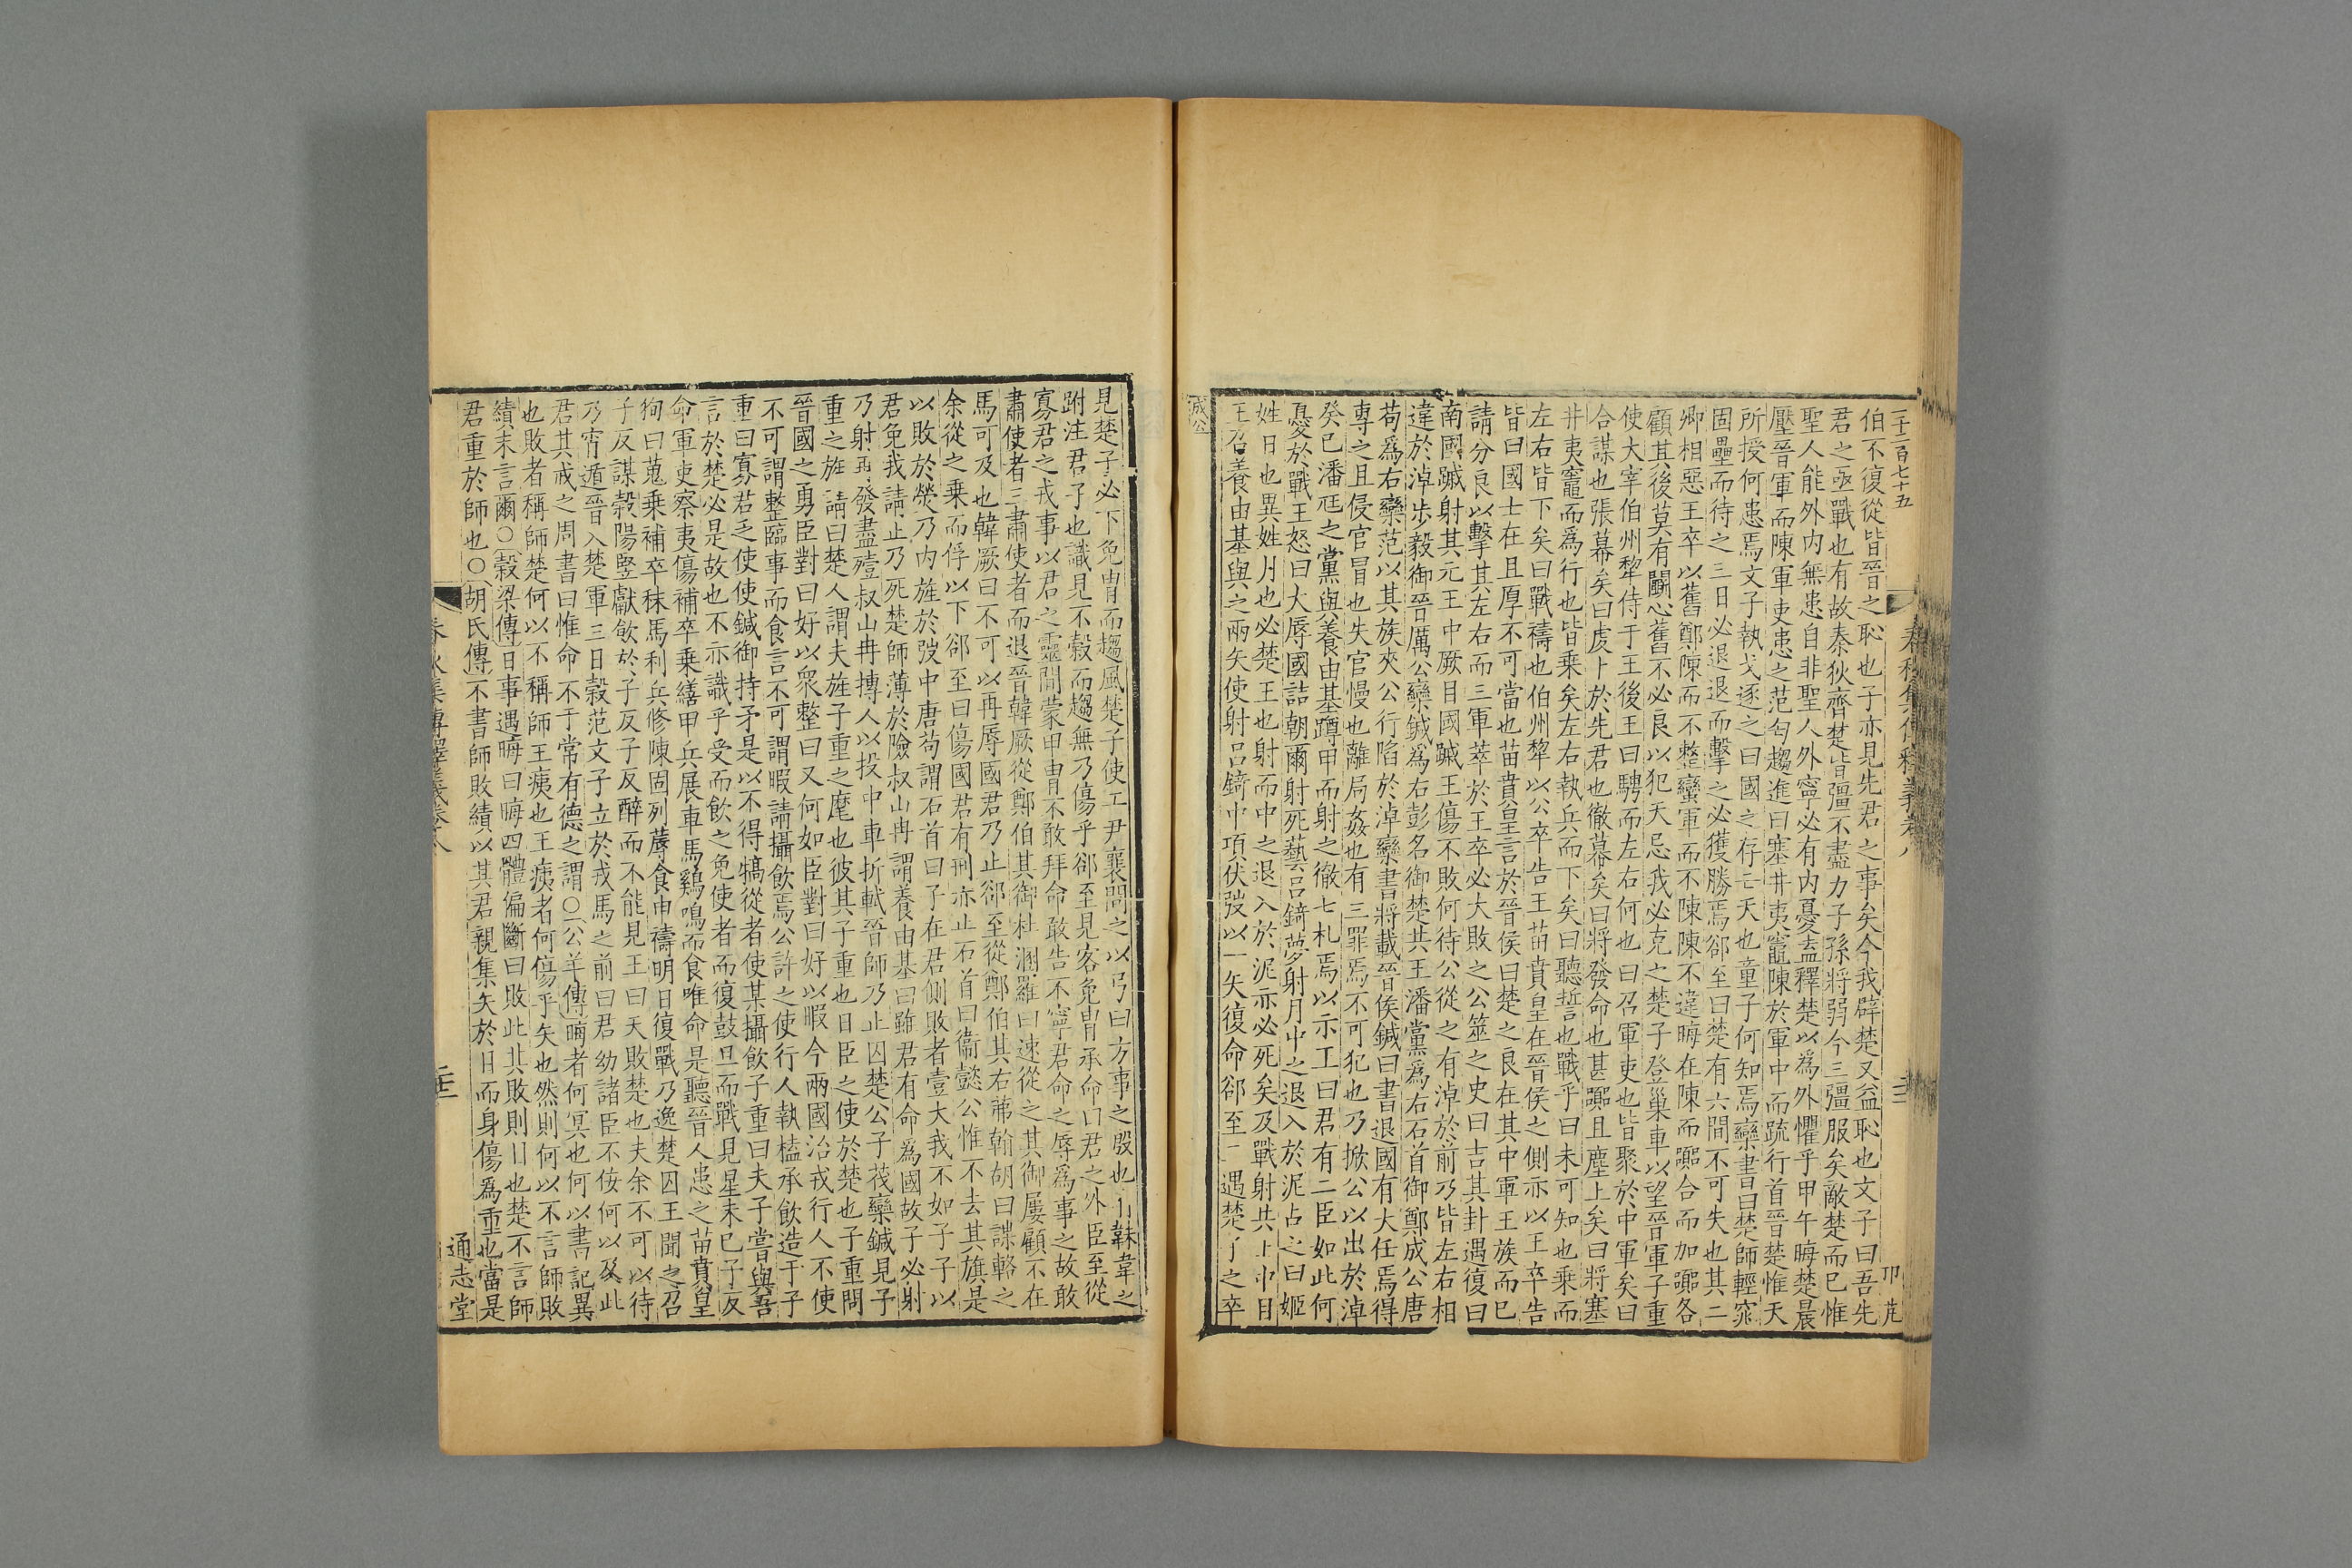 二十二百七十五
伯不復從皆晉之恥也子亦見先君之事矣今我辟楚又益恥也文子曰吾先
君之亟戰也有故秦狄齊楚皆彊不盡力子孫將弱今三彊服矣敵楚而已惟
聖人能外内無患自非聖人外寧必有内憂盍釋楚以爲外懼乎甲午晦楚晨
壓晉軍而陳軍吏患之范匄趨進曰塞井夷竈陳於軍中而疏行首晉楚惟天
所授何患焉文子執戈逐之曰國之存亡天也童子何知焉欒書曰楚師輕窕
固壘而待之三日必退退而擊之必獲勝焉郤至曰楚有六間不可失也其二
卿相惡王卒以舊鄭陳而不整蠻軍而不陳陳不違晦在陳而嚻合而加嚻各
顧其後莫有鬬心舊不必良以犯天忌我必克之楚子登巢車以望晉軍子重
使大宰伯州犂侍于王後王曰騁而左右何也曰召軍吏也皆聚於中軍矣曰
合謀也張幕矣曰虔卜於先君也徹幕矣曰將發命也甚嚻且塵上矣曰將塞
井夷竈而爲行也皆乘矣左右執兵而下矣曰聽誓也戰乎曰未可知也乘而
左右皆下矣曰戰禱也伯州犂以公卒告王苗賁皇在晉侯之側亦以王卒告
皆曰國士在且厚不可當也苗賁皇言於晉侯曰楚之良在其中軍王族而已
請分良以擊其左右而三軍萃於王卒必大敗之公筮之史曰吉其卦遇復曰
南國䠞射其元王中厥目國䠞王傷不敗何待公從之有淖於前乃皆左右相
違於淖步毅御晉厲公欒鍼爲右彭名御楚共王潘黨爲右石首御鄭成公唐
苟爲右欒范以其族夾公行陷於淖欒書將載晉侯鍼曰書退國有大任焉得
專之且侵官冒也失官慢也離局姦也有三罪焉不可犯也乃掀公以出於淖
癸巳潘尫之黨與養由基蹲甲而射之徹七札焉以示王曰君有二臣如此何
憂於戰王怒曰大辱國詰朝爾射死藝呂錡夢射月中之退入於泥占之曰姬
姓日也異姓月也必楚王也射而中之退入於泥亦必死矣及戰射共王中目
王召養由基與之兩矢使射呂錡中項伏弢以一矢復命郤至三遇楚子之卒
成公
見楚子必下免胄而趨風楚子使工尹襄問之以弓曰方事之殷也有韎韋之
跗注君子也識見不穀而趨無乃傷乎郤至見客免胄承命曰君之外臣至從
寡君之戎事以君之靈間蒙甲胄不敢拜命敢告不寧君命之辱爲事之故敢
肅使者三肅使者而退晉韓厥從鄭伯其御杜溷羅曰速從之其御屢顧不在
馬可及也韓厥曰不可以再辱國君乃止郤至從鄭伯其右茀翰胡曰諜輅之
余從之乘而俘以下郤至曰傷國君有刑亦止石首曰衞懿公惟不去其旗是
以敗於熒乃内旌於弢中唐苟謂石首曰子在君側敗者壹大我不如子子以
君免我請止乃死楚師薄於險叔山冉謂養由基曰雖君有命爲國故子必射
乃射再發盡殪叔山冉搏人以投中車折軾晉師乃止囚楚公子茷欒鍼見子
重之旌請曰楚人謂夫旌子重之麾也彼其子重也日臣之使於楚也子重問
晉國之勇臣對曰好以衆整曰又何如臣對曰好以暇今兩國治戎行人不使
不可謂整臨事而食言不可謂暇請攝飲焉公許之使行人執榼承飲造于子
重曰寡君乏使使鍼御持矛是以不得犒從者使某攝飲子重曰夫子嘗與吾
言於楚必是故也不亦識乎受而飲之免使者而復鼓旦而戰見星未已子反
命軍吏察夷傷補卒乘繕甲兵展車馬鷄鳴而食唯命是聽晉人患之苗賁皇
狥曰蒐乘補卒秣馬利兵修陳固列蓐食申禱明日復戰乃逸楚囚王聞之召
子反謀穀陽竪獻飲於子反子反醉而不能見王曰天敗楚也夫余不可以待
乃宵遁晉入楚軍三日穀范文子立於戎馬之前曰君幼諸臣不佞何以及此
君其戒之周書曰惟命不于常有德之謂○公羊傳晦者何冥也何以書記異
也敗者稱師楚何以不稱師王痍也王痍者何傷乎矢也然則何以不言師敗
績末言爾○穀梁傳日事遇晦曰晦四體偏斷曰敗此其敗則目也楚不言師
君重於師也○胡氏傳不書師敗績以其君親集矢於目而身傷爲重也當是
春秋集傳釋義卷十八
通志堂